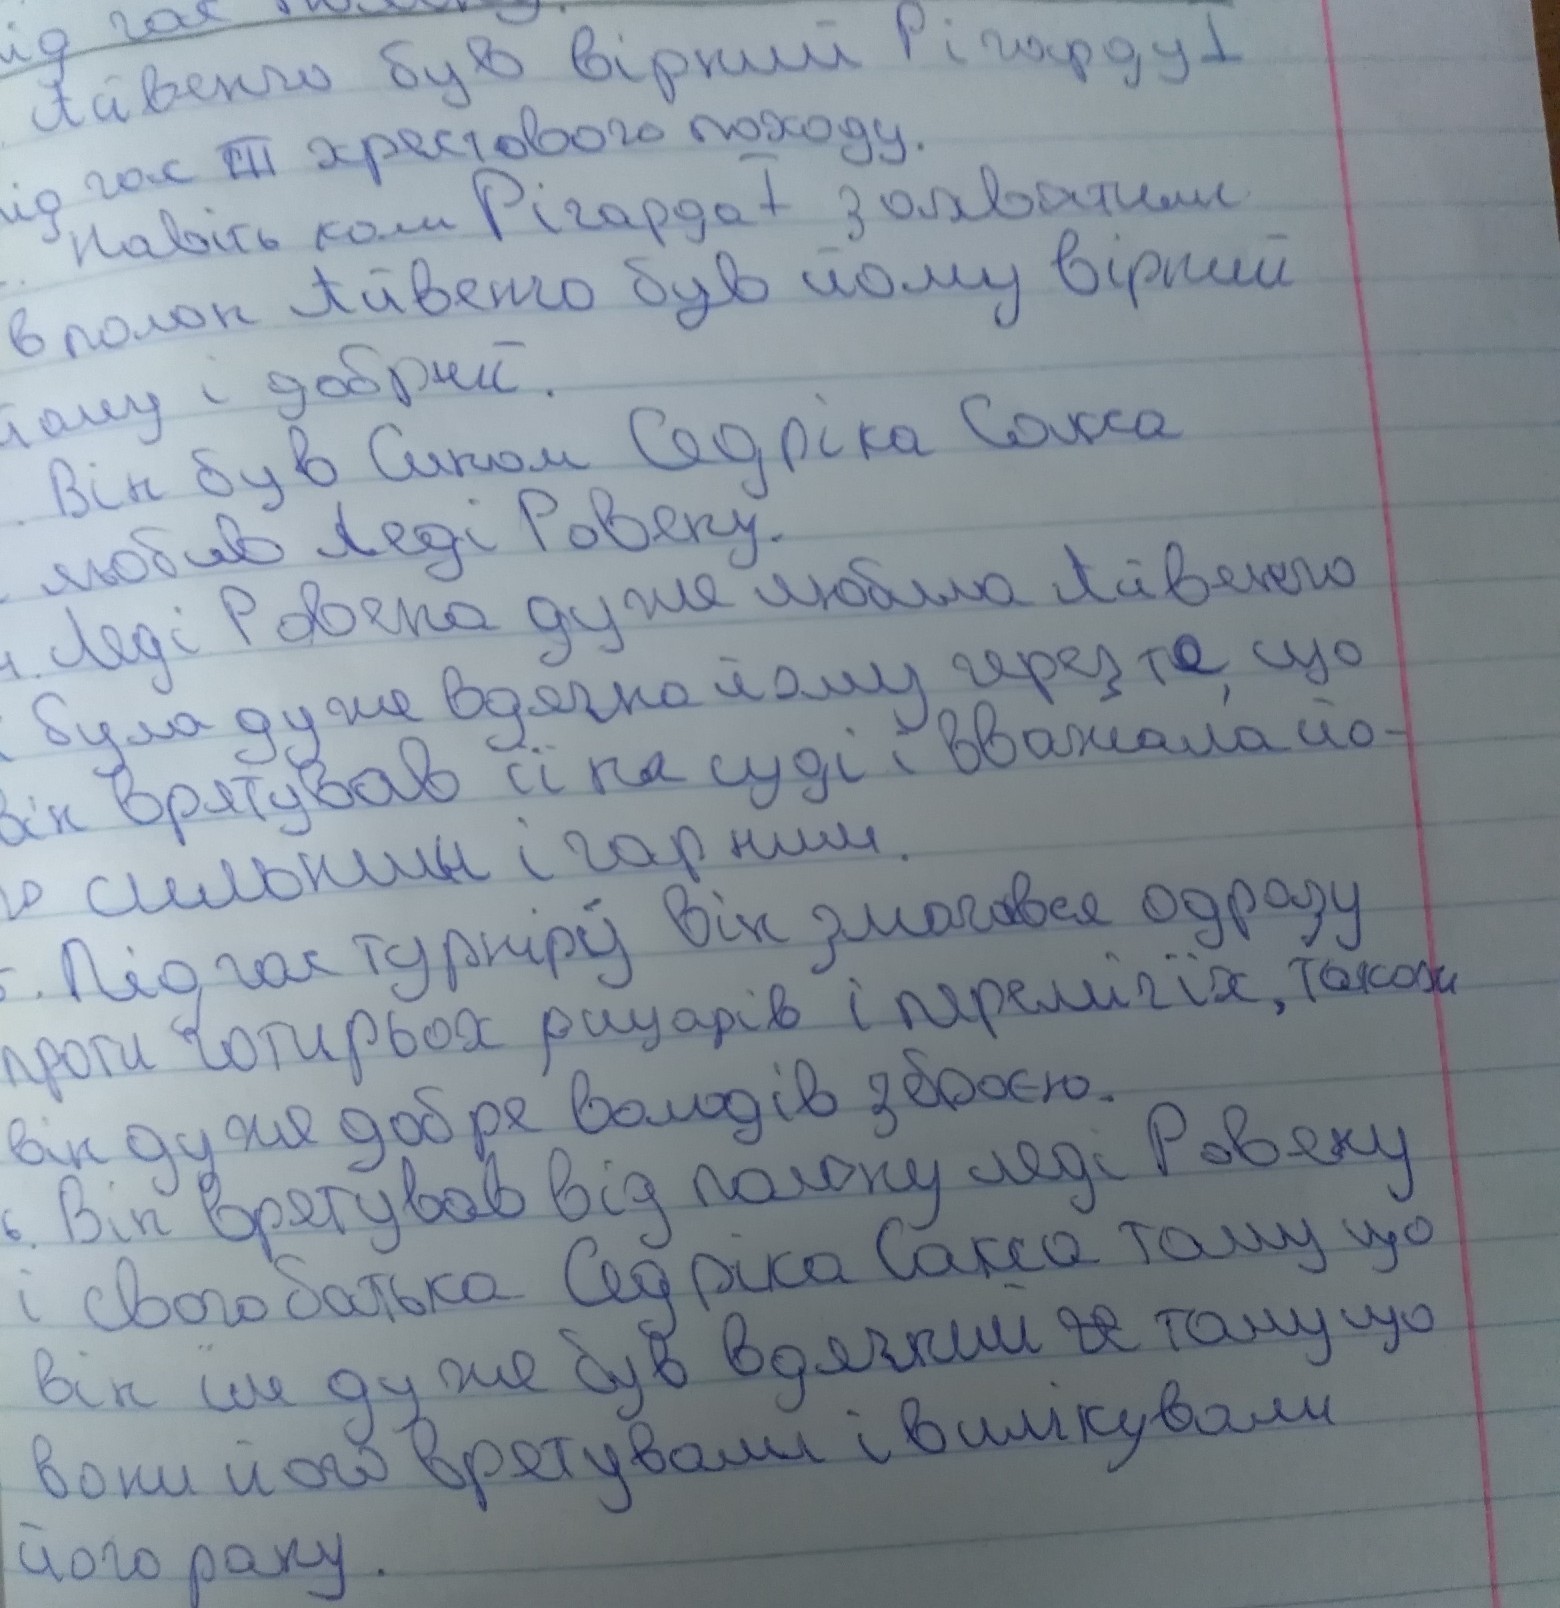 під час
Айвенго був вірний Річарду I
під час III хрестового походу.
Навіть коли Річарда I захватили
в полон Айвенго був йому вірний
йому і добрий.
Він був Сином Седріка Сакса
любив Леді Ровену.
4. Леді Ровена дуже любила Айвенго
була дуже вдячна йому через те, що
він врятував її на суді і вважала йо-
го сильним і гарним.
5. Під час турніру він змагався одразу
проти чотирьох рицарів і переміг їх, також
він дуже добре володів зброєю.
6. Він врятував від полону леді Ровену
і свого батька Седріка Сакса тому що
він їм дуже був вдячний тому що
вони його врятували і вилікували
його рану.